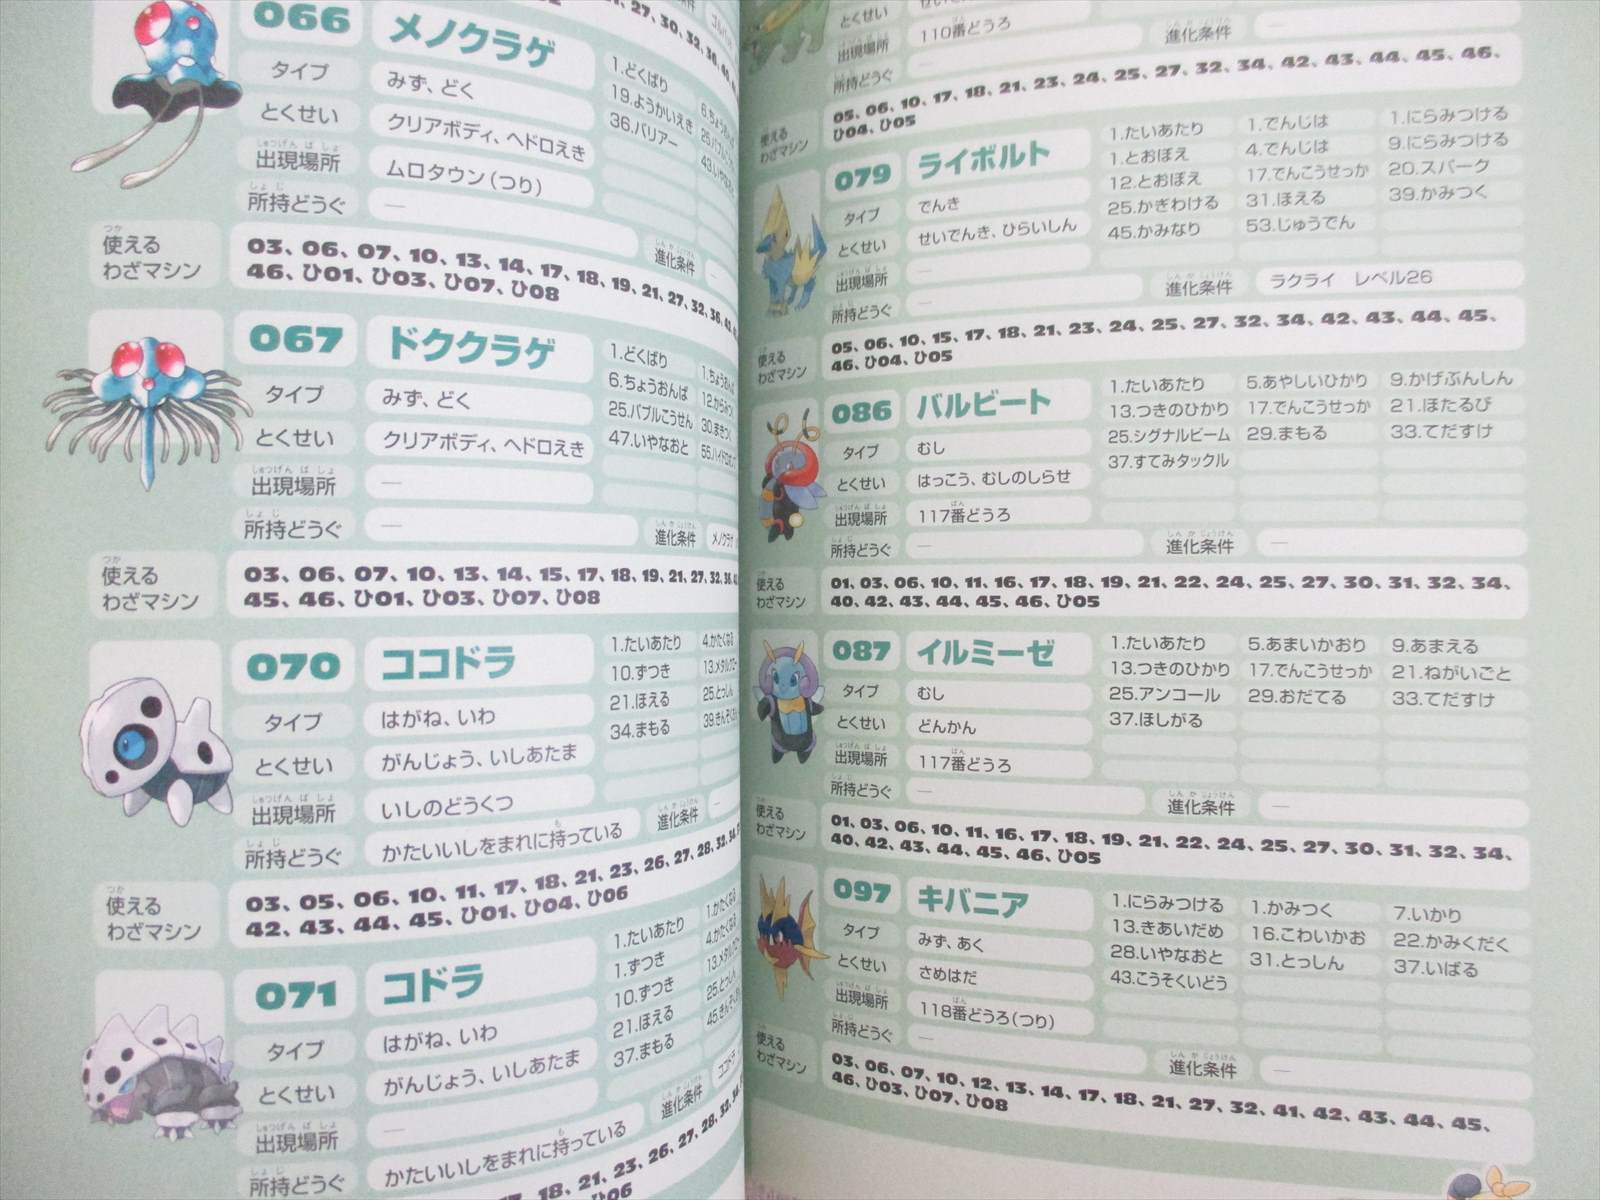 066 メノクラゲ
タイプ みず、どく
とくせい クリアボディ、ヘドロえき
出現場所 ムロタウン(つり)
所持どうぐ —
進化条件 —
1.どくばり
19.ようかいえき
36.バリアー
使える
わざマシン
03、06、07、10、13、14、17、18、19、21、27、32、36、
46、ひ01、ひ03、ひ07、ひ08
067 ドククラゲ
タイプ みず、どく
とくせい クリアボディ、ヘドロえき
出現場所 —
所持どうぐ —
進化条件 メノクラゲ
1.どくばり
6.ちょうおんぱ
25.バブルこうせん
47.いやなおと
使える
わざマシン
03、06、07、10、13、14、15、17、18、19、21、27、32、
45、46、ひ01、ひ03、ひ07、ひ08
070 ココドラ
タイプ はがね、いわ
とくせい がんじょう、いしあたま
出現場所 いしのどうくつ
所持どうぐ かたいいしをまれに持っている
進化条件 —
1.たいあたり 4.かたくなる
10.ずつき
21.ほえる 25.とっしん
34.まもる
使える
わざマシン
03、05、06、10、11、17、18、21、23、26、27、28、32、
42、43、44、45、ひ01、ひ04、ひ06
071 コドラ
タイプ はがね、いわ
とくせい がんじょう、いしあたま
出現場所 —
所持どうぐ かたいいしをまれに持っている
進化条件 ココドラ
1.たいあたり 1.かたくなる
1.ずつき 4.かたくなる
10.ずつき
21.ほえる 25.とっしん
37.まもる
18、21、23、26、27、28、32、
ひ06
とくせい
出現場所 110番どうろ
所持どうぐ —
進化条件 —
使える
わざマシン
05、06、10、17、18、21、23、24、25、27、32、34、42、43、44、45、46、
ひ04、ひ05
079 ライボルト
タイプ でんき
とくせい せいでんき、ひらいしん
出現場所 —
所持どうぐ —
進化条件 ラクライ レベル26
1.たいあたり 1.でんじは 1.にらみつける
1.とおぼえ 4.でんじは 9.にらみつける
12.とおぼえ 17.でんこうせっか 20.スパーク
25.かぎわける 31.ほえる 39.かみつく
45.かみなり 53.じゅうでん
使える
わざマシン
05、06、10、15、17、18、21、23、24、25、27、32、34、42、43、44、45、
46、ひ04、ひ05
086 バルビート
タイプ むし
とくせい はっこう、むしのしらせ
出現場所 117番どうろ
所持どうぐ —
進化条件 —
1.たいあたり 5.あやしいひかり 9.かげぶんしん
13.つきのひかり 17.でんこうせっか 21.ほたるび
25.シグナルビーム 29.まもる 33.てだすけ
37.すてみタックル
使える
わざマシン
01、03、06、10、11、16、17、18、19、21、22、24、25、27、30、31、32、34、
40、42、43、44、45、46、ひ05
087 イルミーゼ
タイプ むし
とくせい どんかん
出現場所 117番どうろ
所持どうぐ —
進化条件 —
1.たいあたり 5.あまいかおり 9.あまえる
13.つきのひかり 17.でんこうせっか 21.ねがいごと
25.アンコール 29.おだてる 33.てだすけ
37.ほしがる
使える
わざマシン
01、03、06、10、11、16、17、18、19、21、22、24、25、27、30、31、32、34、
40、42、43、44、45、46、ひ05
097 キバニア
タイプ みず、あく
とくせい さめはだ
出現場所 118番どうろ(つり)
所持どうぐ —
進化条件 —
1.にらみつける 1.かみつく 7.いかり
13.きあいだめ 16.こわいかお 22.かみくだく
28.いやなおと 31.とっしん 37.いばる
43.こうそくいどう
使える
わざマシン
03、06、07、10、12、13、14、17、18、21、27、32、41、42、43、44、45、
46、ひ03、ひ07、ひ08